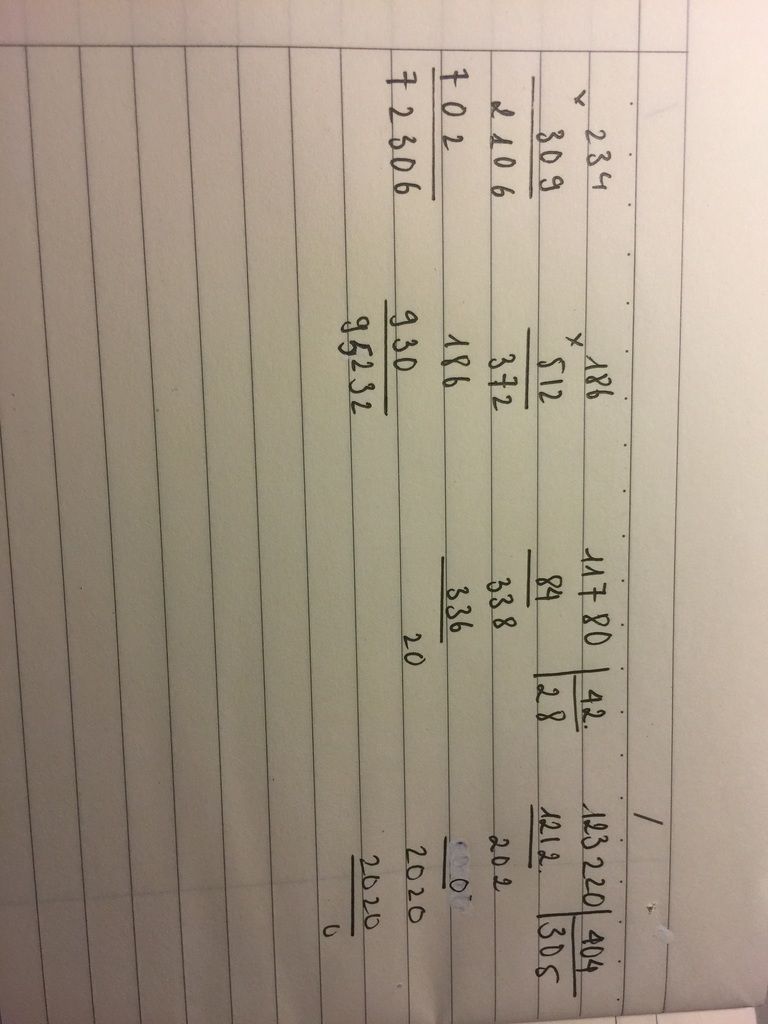 234
x
309
2106
702
72306
186
x
512
372
186
930
95232
11780 | 42.
84 | 28
338
336
20
123220 | 404
1212. | 305
202
0
2020
2020
0